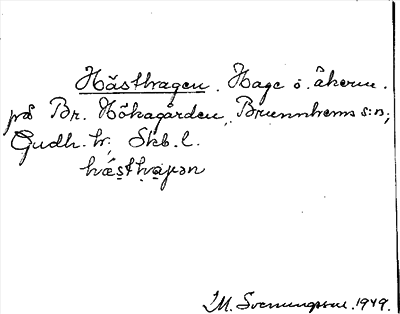 Hästhagen. Hage o. åkern.
på Br. Hökagården, Brunnhems s:n,
Gudh. hr, Skb. l.
hǽsthaɡən
M. Svenungsson. 1949.